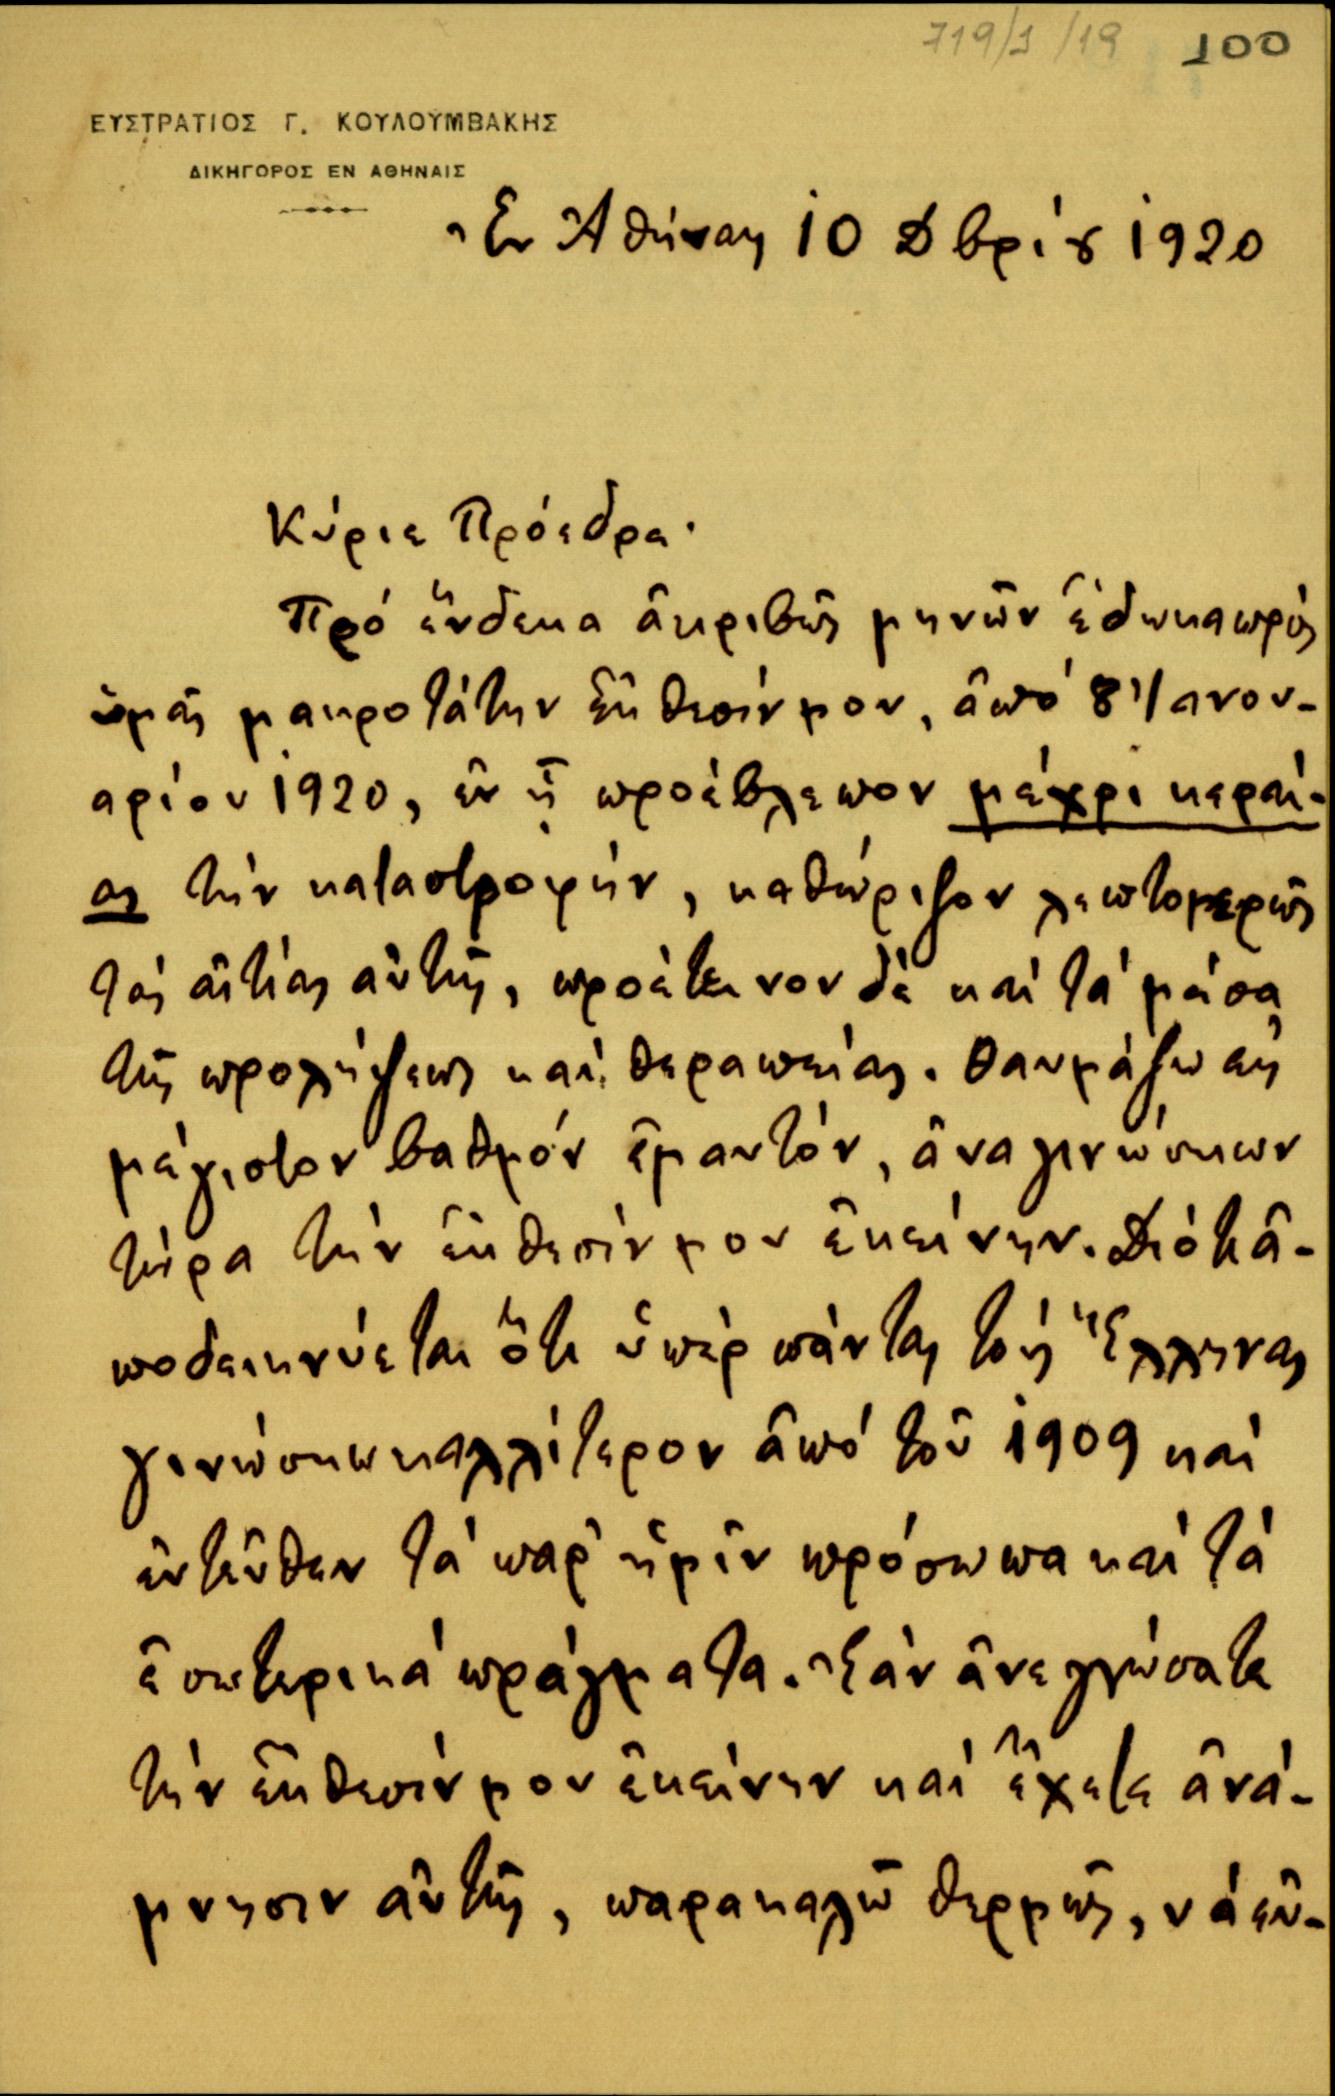 719/1/19 100
ΕΥΣΤΡΑΤΙΟΣ Γ. ΚΟΥΛΟΥΜΒΑΚΗΣ
ΔΙΚΗΓΟΡΟΣ ΕΝ ΑΘΗΝΑΙΣ
Ἐν Ἀθήναις 10 Δβρίȣ 1920
Κύριε Πρόεδρε·
Πρό ἕνδεκα ἀκριβῶς μηνῶν ἔδωκα πρός
ὑμᾶς μακροτάτην ἔκθεσίν μου, ἀπό 8 Ἰανου-
αρίου 1920, ἐν ᾗ προέβλεπον μέχρι κεραί-
ας τήν καταστροφήν, καθώριζον λεπτομερῶς
τάς αἰτίας αὐτῆς, προέτεινον δέ καί τά μέσα
τῆς προλήψεως καί θεραπείας. Θαυμάζω εἰς
μέγιστον βαθμόν ἐμαυτόν, ἀναγινώσκων
τώρα τήν ἔκθεσίν μου ἐκείνην. Διότι ἀ-
ποδεικνύεται ὅτι ὑπέρ πάντας τούς Ἕλληνας
γινώσκω καλλίτερον ἀπό τοῦ 1909 καί
ἐντεῦθεν τά παρ' ἡμῖν πρόσωπα καί τά
ἐσωτερικά πράγματα. Ἐάν ἀνεγνώσατε
τήν ἔκθεσίν μου ἐκείνην καί ἔχετε ἀνά-
μνησιν αὐτῆς, παρακαλῶ θερμῶς, νά εὐ-